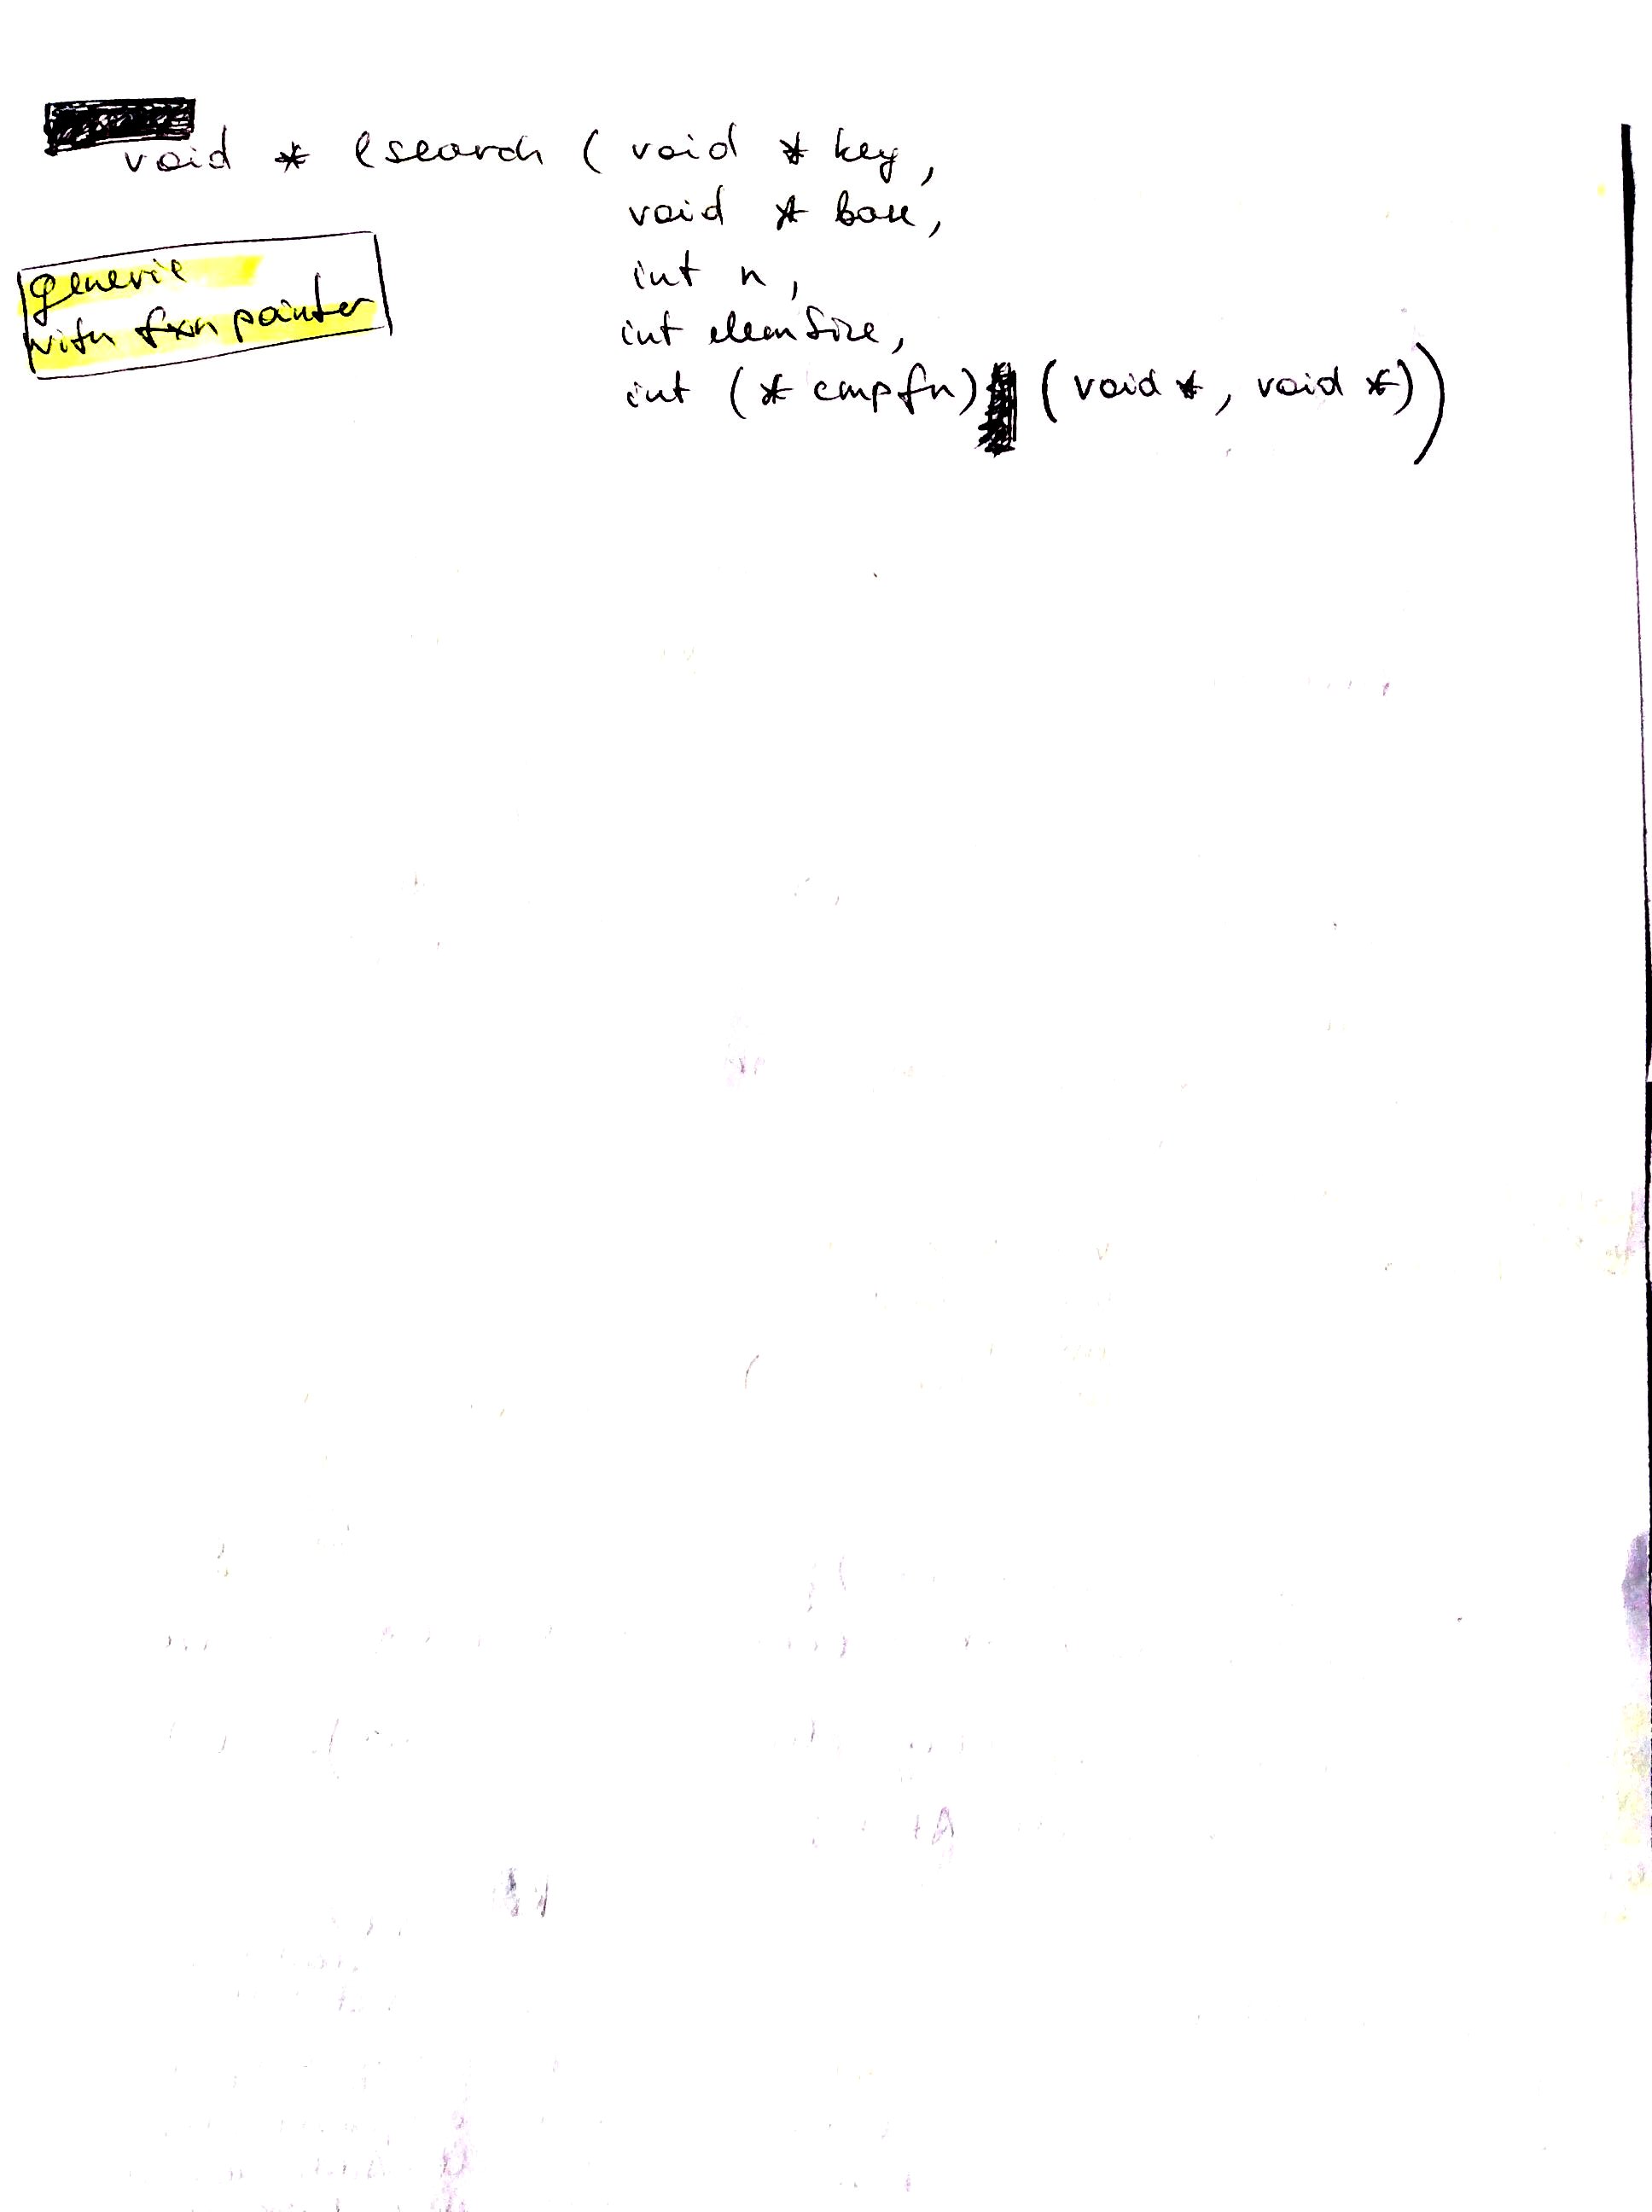 void * lsearch ( void * key,
void * base,
int n,
int elemSize,
int (* cmpfn) (void *, void *))
generic
with fxn pointer